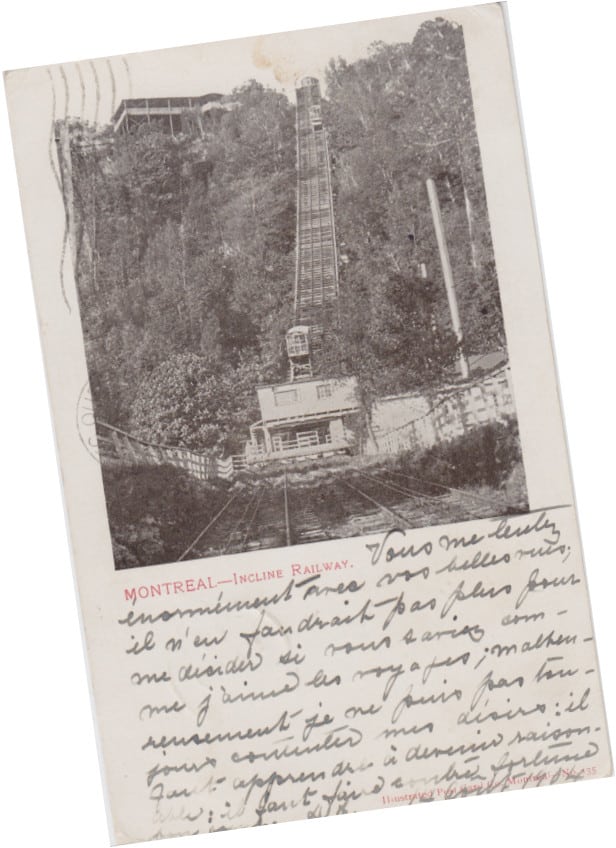 MONTREAL—INCLINE RAILWAY.
Vous me tentez
énormément avec vos belles vues;
il n'en faudrait pas plus pour
me décider si vous saviez com-
me j'aime les voyages; malheu-
reusement je ne puis pas tou-
jours contenter mes désirs: il
faut apprendre à devenir raison-
able: il faut faire contre fortune
Illustrated Post Card Co., Montreal. No. 135